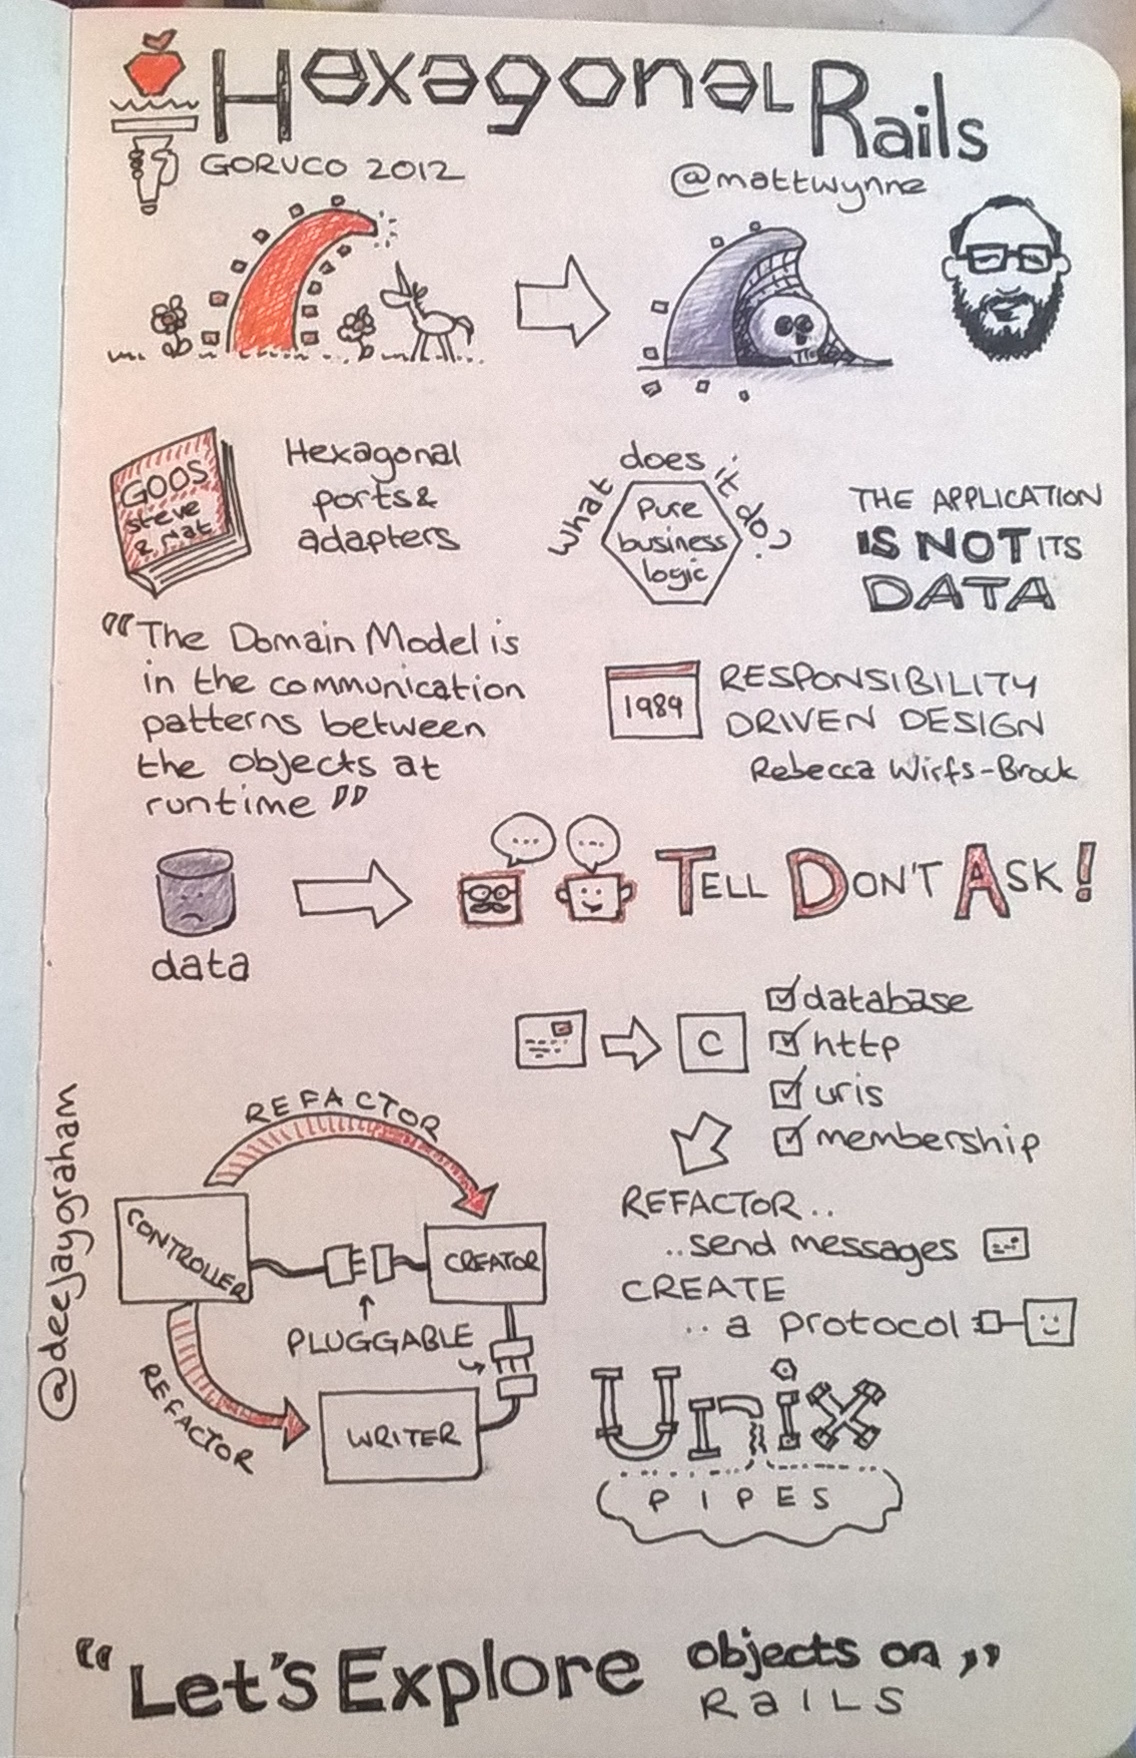 Hexagonal Rails
GORUCO 2012
@mattwynne
GOOS
steve
& Nat
Hexagonal
ports &
adapters
What does it do?
Pure
business
logic
THE APPLICATION
IS NOT ITS
DATA
"The Domain Model is
in the communication
patterns between
the objects at
runtime"
1989
RESPONSIBILITY
DRIVEN DESIGN
Rebecca Wirfs-Brock
data
...
...
TELL DON'T ASK!
C
database
http
uris
membership
REFACTOR..
..send messages
CREATE
.. a protocol
REFACTOR
CONTROLLER
CREATOR
PLUGGABLE
REFACTOR
WRITER
Unix
PIPES
@deejaygraham
"Let's Explore objects on
RAILS"